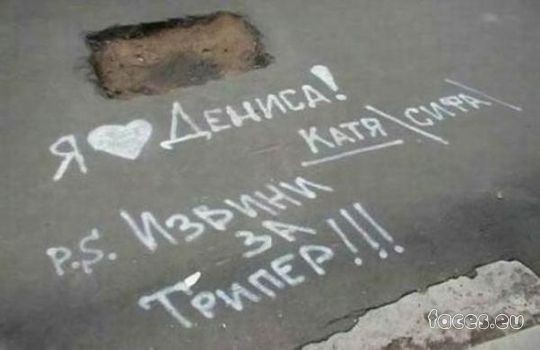 Я ❤ ДЕНИСА!
КАТЯ \СИФА\
P.S. ИЗВИНИ
ЗА
ТРИПЕР!!!
faces.eu